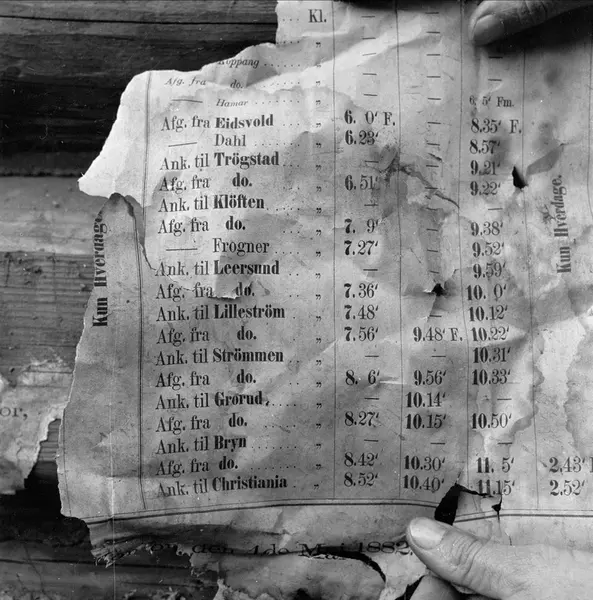 Kl.
Koppang
Afg. fra do.
— Hamar 6. 5' Fm.
Afg. fra Eidsvold „ 6. 0' F. — 8.35' F.
— Dahl „ 6.23' — 8.57'
Ank. til Trögstad „ — — 9.21'
Afg. fra do. „ 6.51' — 9.22'
Ank. til Klöften „ — —
Afg. fra do. „ 7. 9' — 9.38'
— Frogner „ 7.27' — 9.52'
Ank. til Leersund „ — — 9.59'
Afg. fra do. „ 7.36' — 10. 0'
Ank. til Lilleström „ 7.48' — 10.12'
Afg. fra do. „ 7.56' 9.48' F. 10.22'
Ank. til Strömmen „ — — 10.31'
Afg. fra do. „ 8. 6' 9.56' 10.33'
Ank. til Grorud „ — 10.14' —
Afg. fra do. „ 8.27' 10.15' 10.50'
Ank. til Bryn „ — — —
Afg. fra do. „ 8.42' 10.30' 11. 5' 2.43'
Ank. til Christiania „ 8.52' 10.40' 11.15' 2.52'
Kun Hverdage.
Kun Hverdage.
or,
den 1de Mai 1882.